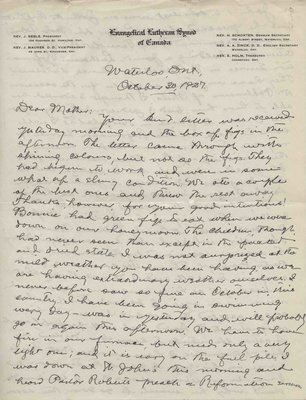 Evangelical Lutheran Synod
of Canada
REV. J. REBLE, PRESIDENT
REV. J. MAURER, D.D., VICE-PRESIDENT
REV. H. SCHORTEN, GERMAN SECRETARY
REV. A. A. ZINCK, D.D., ENGLISH SECRETARY
WATERLOO, ONT.
TREASURER
Waterloo Ont.
October 30, 1927.
Dear Mother:
Your kind letter was received
yesterday morning and the box of figs in the
afternoon. The letter came through with
shining colours, but not so the figs. They
had begun to work and were in some-
what of a slimy condition. We ate a couple
of the best ones and threw the rest away.
Thanks however for your good intentions!
Bonnie had green figs to eat when we were
down on our honeymoon. The children though
had never seen them except in the pressed
and dried state. I was not surprised at the
mild weather you have been having as we
are having extraordinary weather ourselves. I
never before saw so fine an October in this
country. I have been going in swimming
every day - was in yesterday and will probably
go in again this afternoon. We have to have
fire in our furnace but need only a very
light one; and it is easy on the fuel pile. I
was down at St Johns this morning and
heard Pastor Roberts preach a Reformation sermon